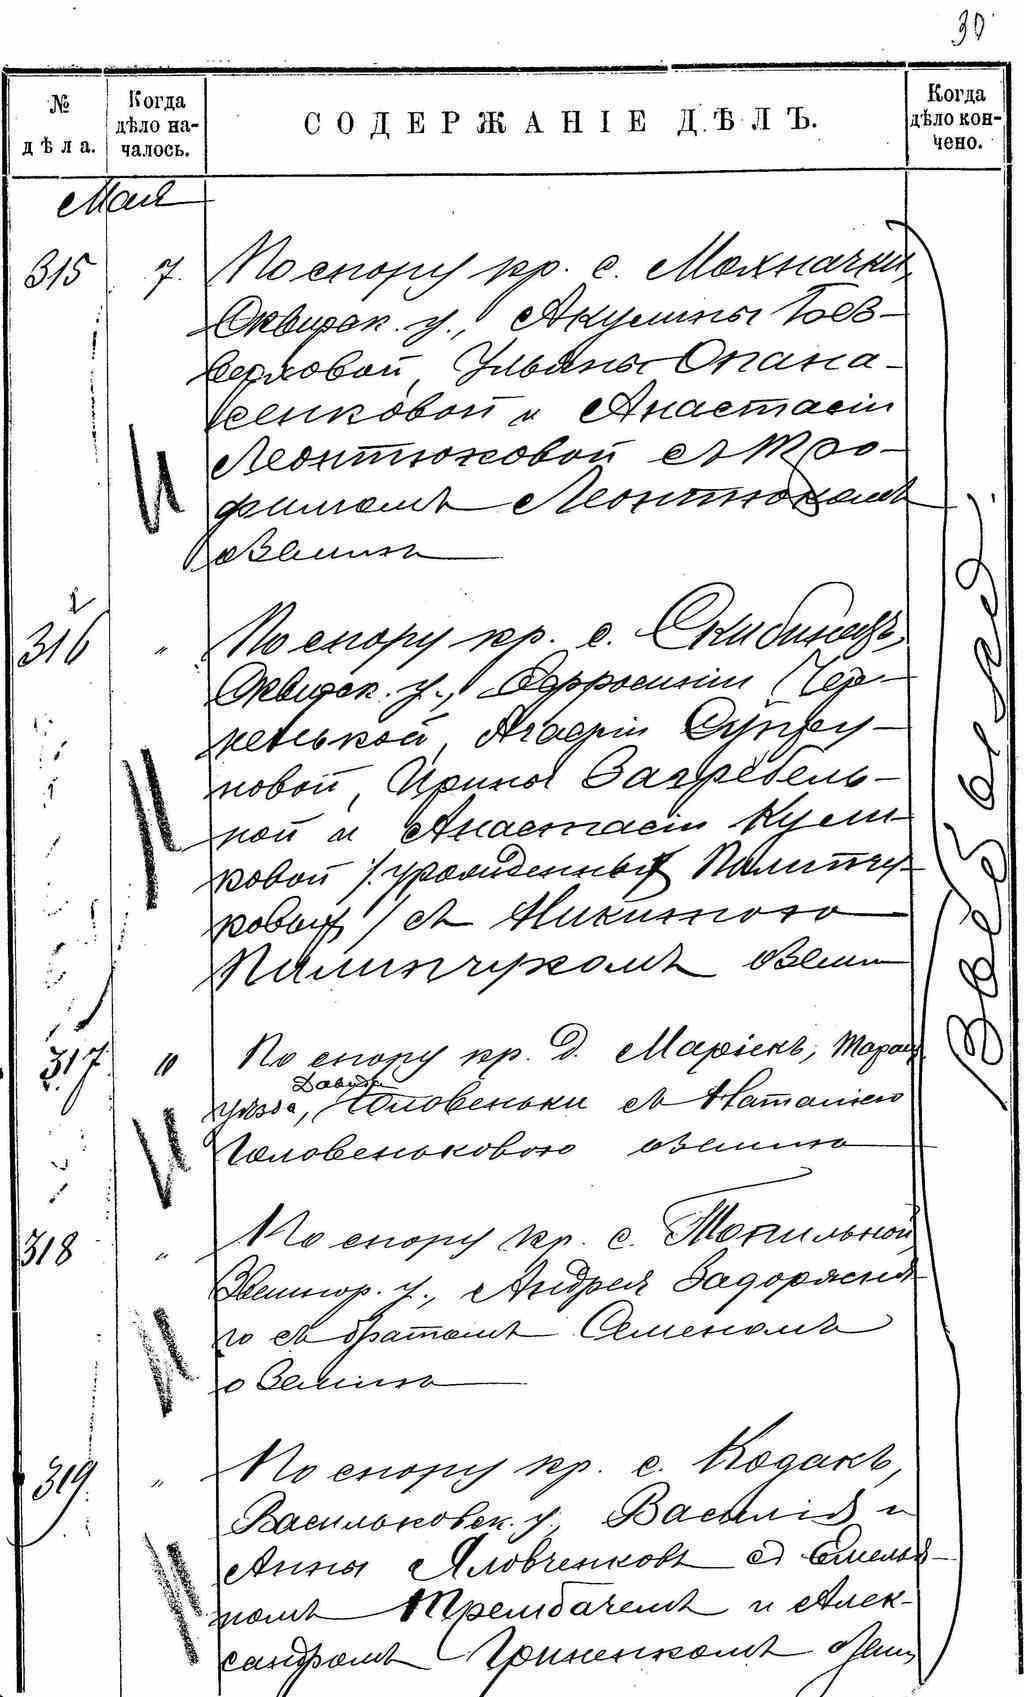 30
№ дѣла.
Когда дѣло началось.
СОДЕРЖАНІЕ ДѢЛЪ.
Когда дѣло кончено.
Мая
315 7. По спору кр. с. Мохначки,
Сквирск. у., Акулины Без-
верховой, Ульяны Опана-
сенковой и Анастасіи
Леонтюковой съ Тро-
фимомъ Леонтюкомъ
о землѣ
316 " По спору кр. с. Скибинецъ,
Сквирск. у., Ефросиніи Чер-
ненькой, Агафіи Супру-
новой, Ирины Загребель-
ной и Анастасіи Кули-
ковой /урожденныхъ Палипчу-
ковыхъ/ съ Никитою
Палипчукомъ о земли
317 " По спору кр. д. Марісekъ, Таращ.
уѣзда, Давида Головеньки съ Наталіею
Головеньковою о землѣ
318 " По спору кр. с. Топильной,
Звениг. у., Андрея Задорожня-
го съ братомъ Семеномъ
о землѣ
319 " По спору кр. с. Кодакъ,
Васильковск. у., Василія и
Анны Яловченковъ съ Емелья-
номъ Трембачемъ и Алек-
сандромъ Гриненкомъ о земл